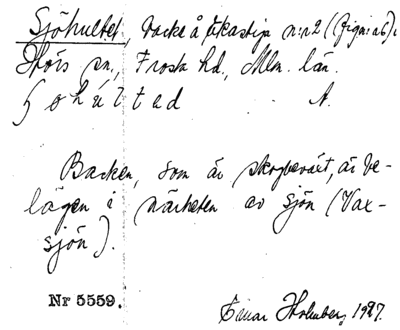 Sjöhultet, backe å Ekastiga n:r 2 (
Hörs sn., Frosta hd., Mlm. län.
ʃ o h ú l t e d A.
Backen, som är skogbeväxt, är be-
lägen i närheten av sjön (Vax-
sjön).
Nr 5559.
Einar Holmberg 1927.